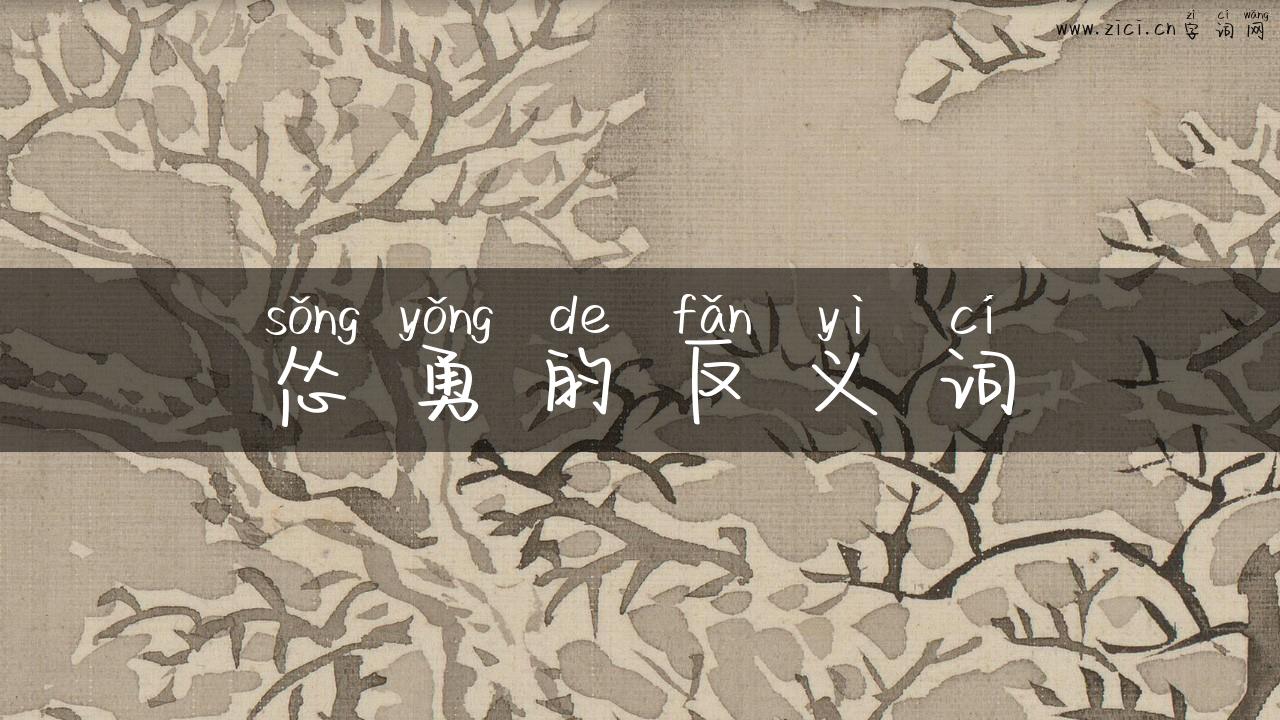 www.zici.cn
zì cí wǎng
字词网
sǒng yǒng de fǎn yì cí
怂勇的反义词